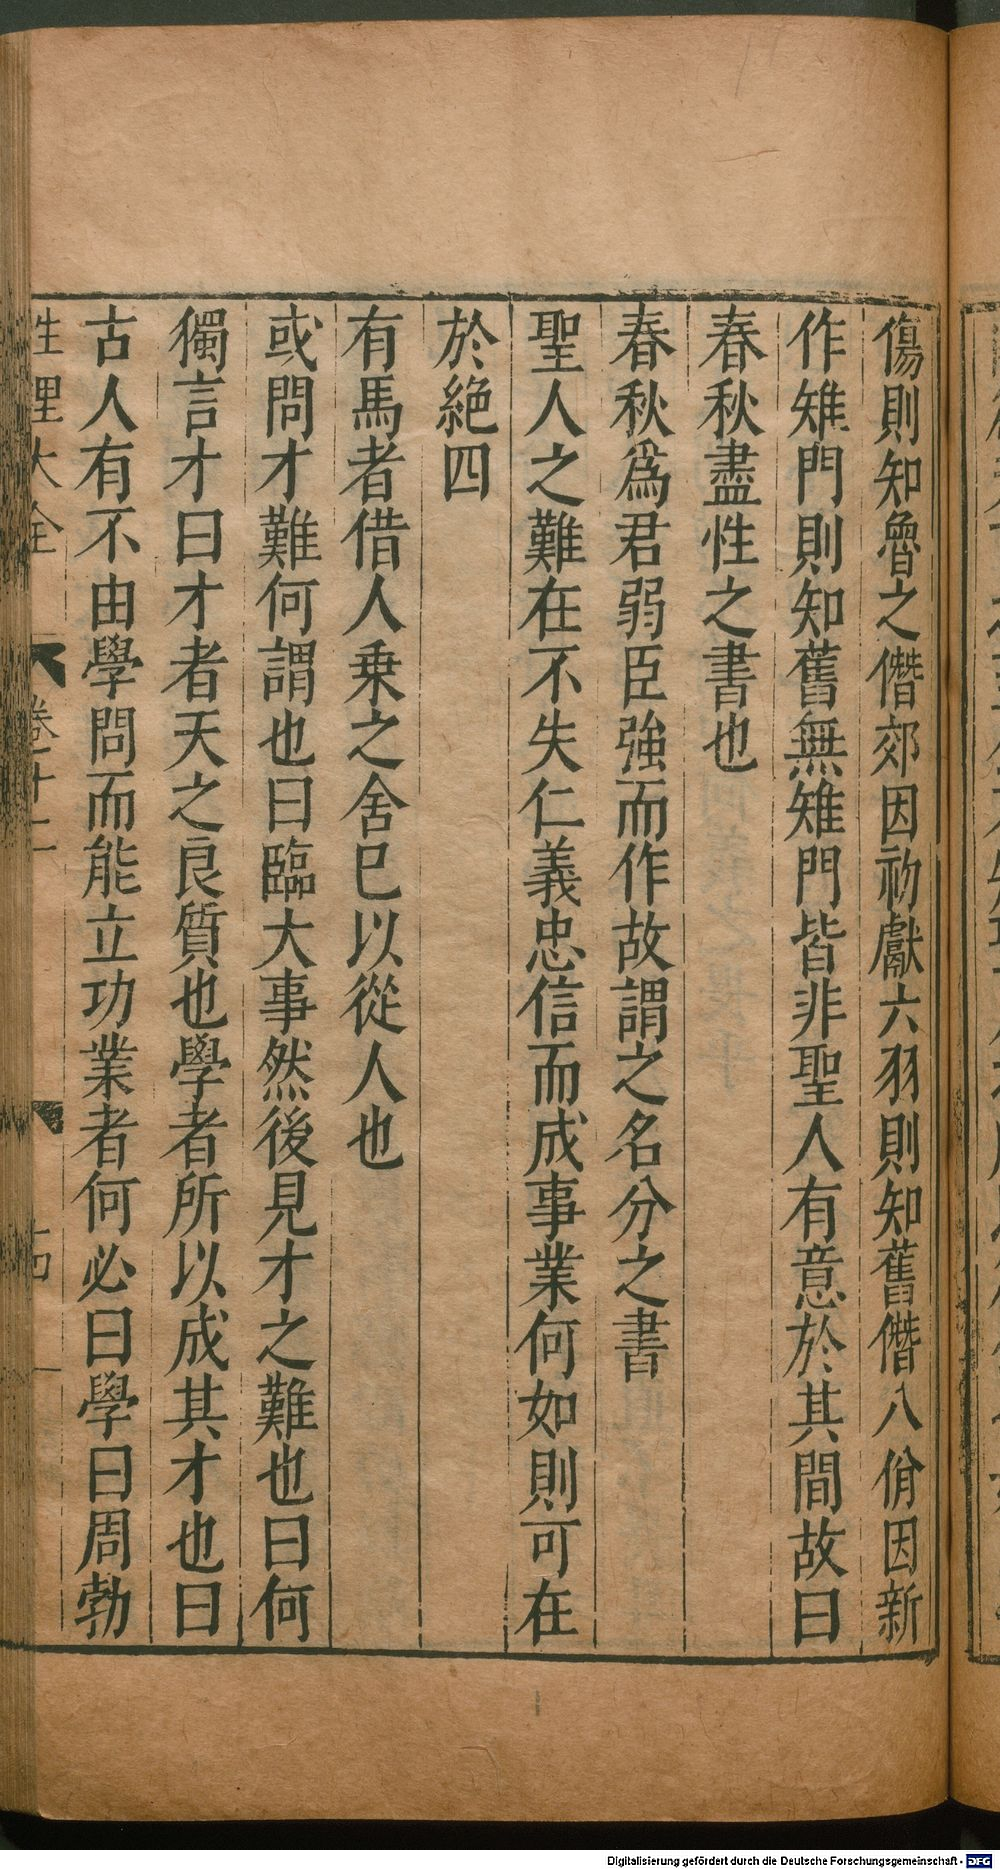 傷則知魯之僭郊因初獻六羽則知舊僭八佾因新
作雉門則知舊無雉門皆非聖人有意於其間故曰
春秋盡性之書也
春秋爲君弱臣強而作故謂之名分之書
聖人之難在不失仁義忠信而成事業何如則可在
於絶四
有馬者借人乗之舍已以從人也
或問才難何謂也曰臨大事然後見才之難也曰何
獨言才曰才者天之良質也學者所以成其才也曰
古人有不由學問而能立功業者何必曰學曰周勃
性理大全 卷十二 十四
Digitalisierung gefördert durch die Deutsche Forschungsgemeinschaft - DFG